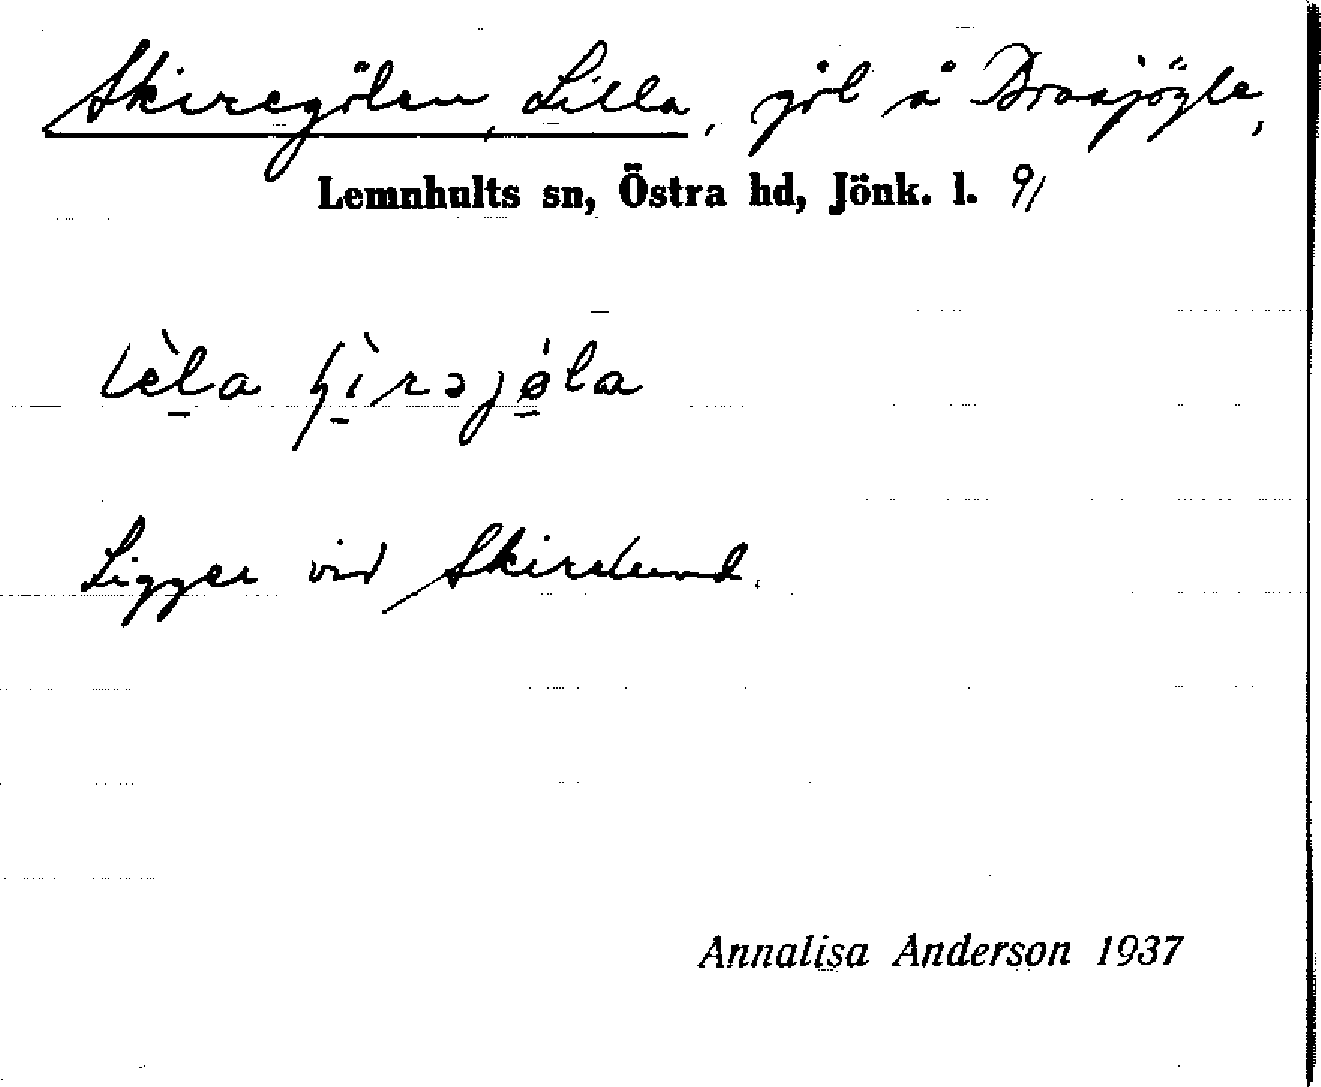 Skiregölen, Lilla, göl å Brosjögle,
Lemnhults sn, Östra hd, Jönk. l. 91
Ligger vid Skirelund.
Annalisa Anderson 1937